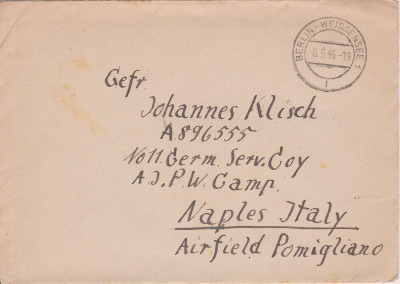 BERLIN-WEISSENSEE 1
-8.5.46.-19
Gefr.
Johannes Klisch
A896555
No 11. Germ. Serv. Coy
A.J.P.W. Camp.
Naples Italy
Airfield Pomigliano